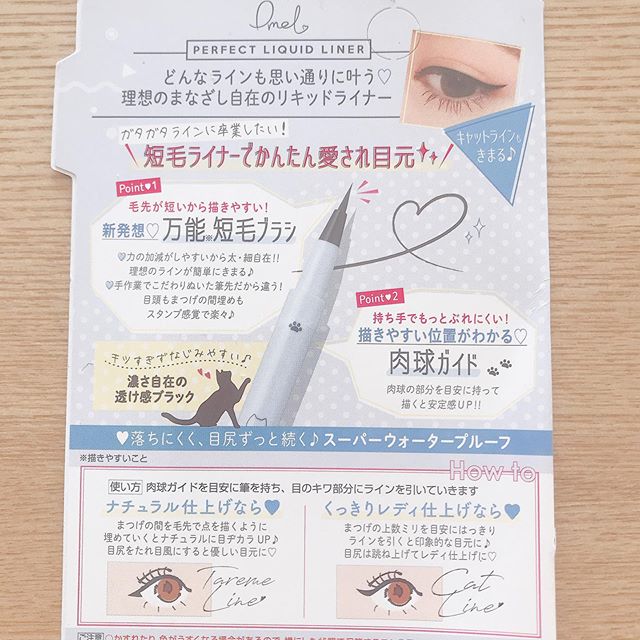 Pmel
PERFECT LIQUID LINER
どんなラインも思い通りに叶う♡
理想のまなざし自在のリキッドライナー
キャットラインも
きまる♪
ガタガタラインに卒業したい!
短毛ライナーでかんたん愛され目元
Point♥1
毛先が短いから描きやすい!
新発想♡万能※短毛ブラシ
♡力の加減がしやすいから太・細自在!!
理想のラインが簡単にきまる♪
♡手作業でこだわりぬいた筆先だから違う!
目頭もまつげの間埋めも
スタンプ感覚で楽々♪
Point♥2
持ち手でもっとぶれにくい!
描きやすい位置がわかる♡
肉球ガイド
肉球の部分を目安に持って
描くと安定感UP!!
キツすぎずなじみやすい♪
濃さ自在の
透け感ブラック
♥落ちにくく、目尻ずっと続く♪スーパーウォータープルーフ
※描きやすいこと
How to
使い方 肉球ガイドを目安に筆を持ち、目のキワ部分にラインを引いていきます
ナチュラル仕上げなら♥
まつげの間を毛先で点を描くように
埋めていくとナチュラルに目ヂカラUP♪
目尻をたれ目風にすると優しい目元に♡
Tareme
Line
くっきりレディ仕上げなら♥
まつげの上数ミリを目安にはっきり
ラインを引くと印象的な目元に♪
目尻は跳ね上げてレディ仕上げに♡
Cat
Line
ご注意